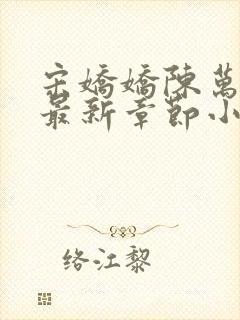 宋嬌嬌陳萬
最新章節小
络江黎